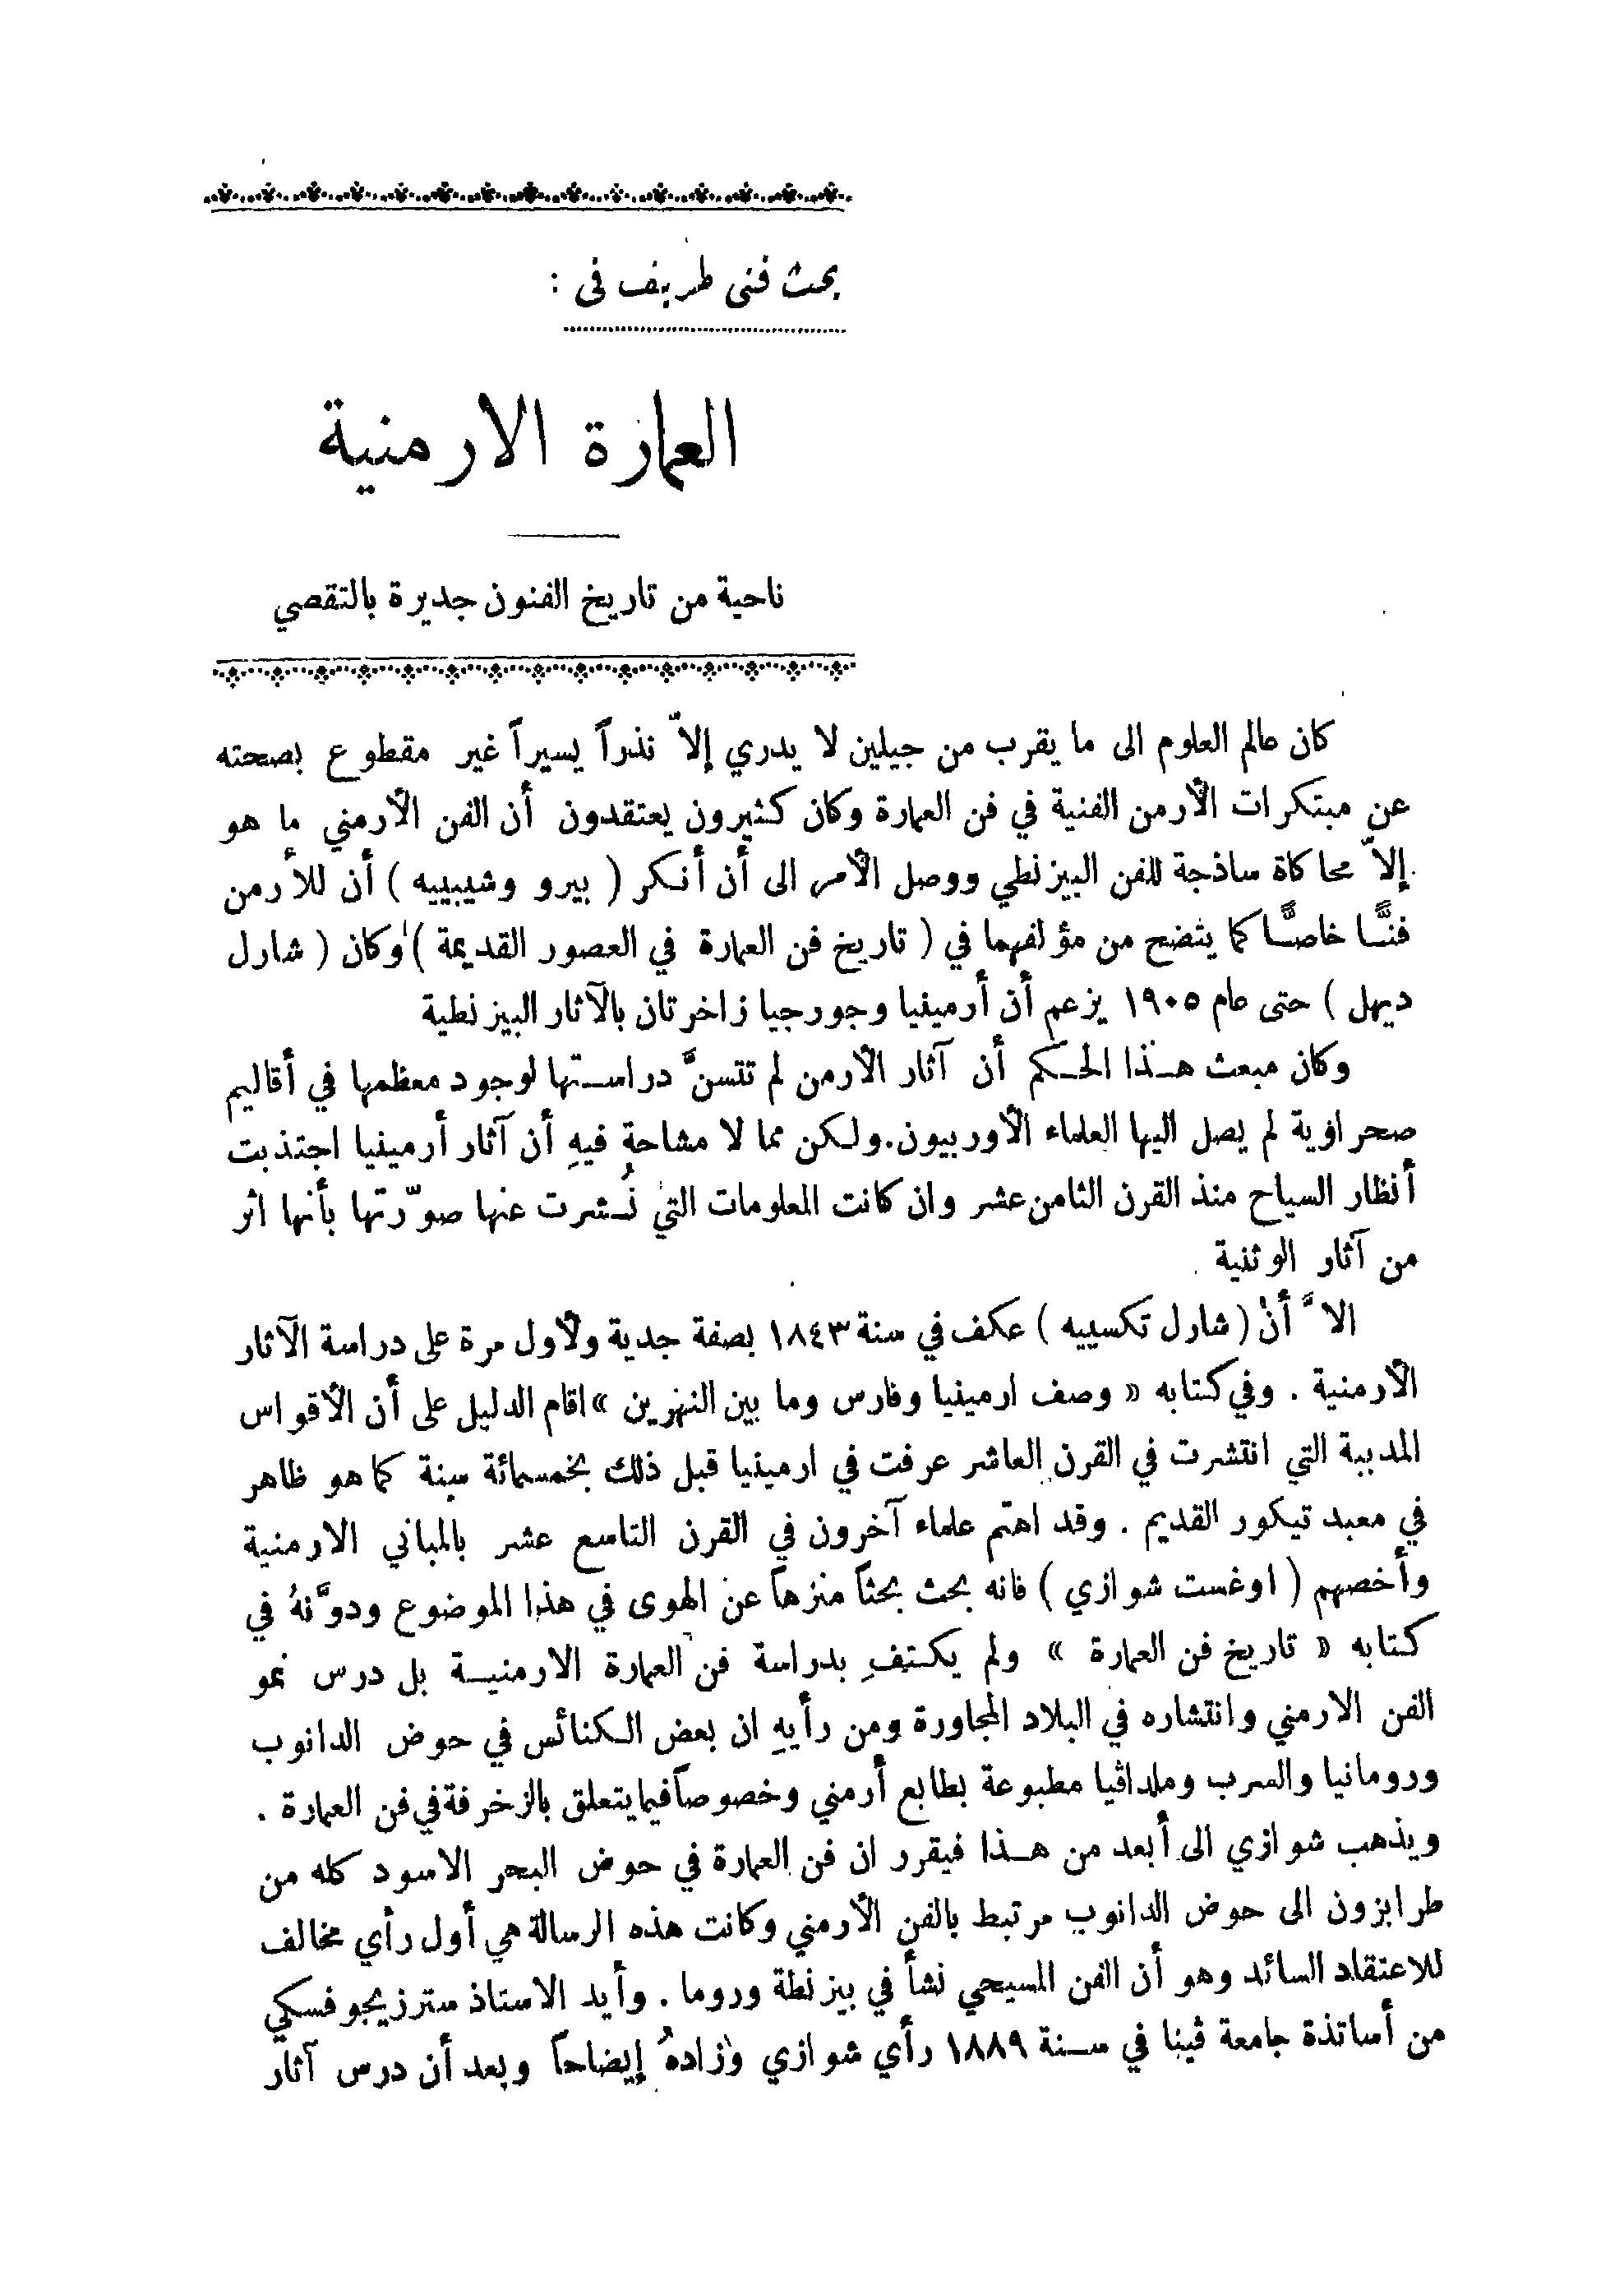 بحث فني طريف في :
العمارة الارمنية
ناحية من تاريخ الفنون جديرة بالتقصي
كان عالم العلوم الى ما يقرب من جيلين لا يدري إلاّ نذراً يسيراً غير مقطوع بصحته
عن مبتكرات الأرمن الفنية في فن العمارة وكان كثيرون يعتقدون أن الفن الأرمني ما هو
إلاّ محاكاة ساذجة للفن البيزنطي ووصل الأمر الى أن أنكر ( بيرو وشيبييه ) أن للأرمن
فنًّا خاصًّا كما يتضح من مؤلفهما في ( تاريخ فن العمارة في العصور القديمة ) وكان ( شارل
ديهل ) حتى عام ١٩٠٥ يزعم أن أرمينيا وجورجيا زاخرتان بالآثار البيزنطية
وكان مبعث هـذا الحـكم أن آثار الأرمن لم تتسنَّ دراسـتها لوجود معظمها في أقاليم
صحراوية لم يصل اليها العلماء الأوربيون. ولكن مما لا مشاحة فيهِ أن آثار أرمينيا اجتذبت
أنظار السياح منذ القرن الثامن عشر وان كانت المعلومات التي نُـشرت عنها صوّرتها بأنها اثر
من آثار الوثنية
الاَّ أن ( شارل تكسييه ) عكف في سنة ١٨٤٣ بصفة جدية ولأول مرة على دراسة الآثار
الأرمنية . وفي كتابه « وصف ارمينيا وفارس وما بين النهرين » اقام الدليل على أن الأقواس
المدببة التي انتشرت في القرن العاشر عرفت في ارمينيا قبل ذلك بخمسمائة سنة كما هو ظاهر
في معبد تيكور القديم . وقد اهتم علماء آخرون في القرن التاسع عشر بالمباني الارمنية
وأخصهم ( اوغست شوازي ) فانه بحث بحثاً منزهاً عن الهوى في هذا الموضوع ودوَّنهُ في
كتابه « تاريخ فن العمارة » ولم يكتفِ بدراسة فن العمارة الارمنيـة بل درس نمو
الفن الارمني وانتشاره في البلاد المجاورة ومن رأيهِ ان بعض الكنائس في حوض الدانوب
ورومانيا والسرب وملداڤيا مطبوعة بطابع أرمني وخصوصاً فيما يتعلق بالزخرفة في فن العمارة .
ويذهب شوازي الى أبعد من هـذا فيقرر ان فن العمارة في حوض البحر الاسود كله من
طرابزون الى حوض الدانوب مرتبط بالفن الأرمني وكانت هذه الرسالة هي أول رأي مخالف
للاعتقاد السائد وهو أن الفن المسيحي نشأ في بيزنطة وروما . وأيد الاستاذ سترزيجوفسكي
من أساتذة جامعة ڤينا في سـنة ١٨٨٩ رأي شوازي وزادهُ إيضاحاً وبعد أن درس آثار